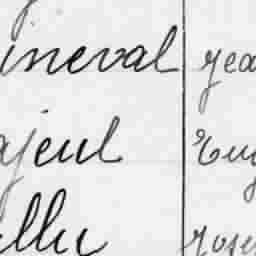 ineval jea
ajeul Eug
llu rose